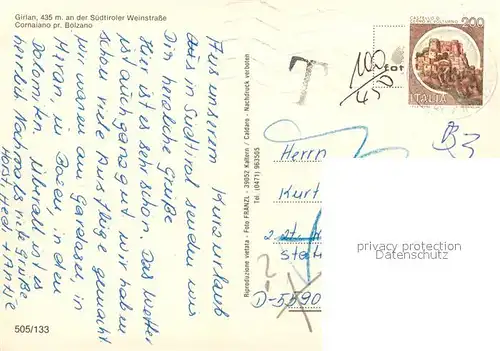 Girlan, 435 m. an der Südtiroler Weinstraße
Cornaiano pr. Bolzano
Aus unserem Kurzurlaub
aus in Südtirol senden wir
Dir herzliche Grüße
Hier ist es sehr schön. Das Wetter
ist auch ganz gut wir haben
schon viele Ausflüge gemacht
wir waren am Gardasee, in
Meran, in Bozen, in den
Dolomiten. Überall ist es
herrlich Nochmals viele Grüße
Horst, Hedi + Antje
505/133
Riproduzione vietata - Foto FRÄNZL - 39052 Kaltern / Caldaro - Nachdruck verboten
Tel. (0471) 963505
T
100
45
for
CASTELLO DI
200
ITALIA
Herrn
Kurt
?
D-5590
privacy protection
watermark